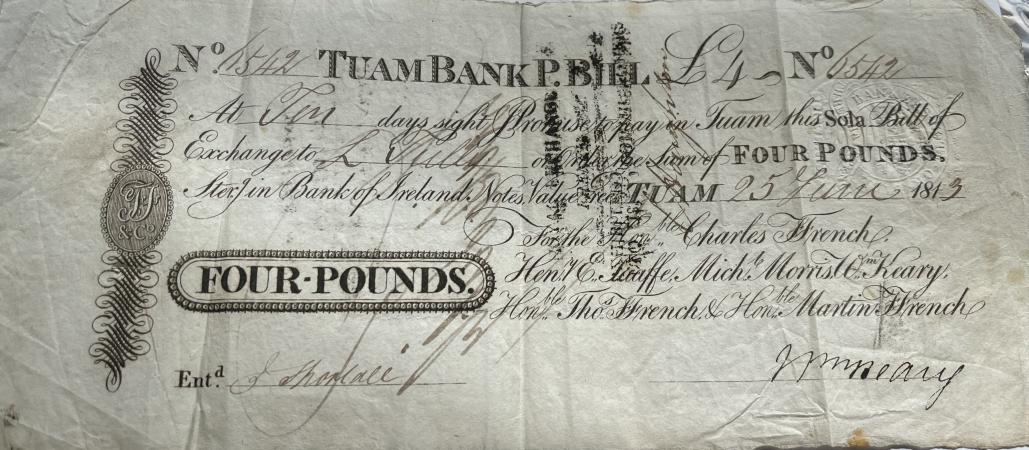 No. 6542 TUAM BANK P. BILL £4 No 6542
At Ten days sight I Promise to pay in Tuam this Sola Bill of
Exchange to L or Order the Sum of FOUR POUNDS.
Ster.g in Bank of Ireland Notes Value Rec.d TUAM 25 June 1813
For the Hon.bles Charles Ffrench.
FF & Co.
FOUR-POUNDS.
Hen.y C. Taaffe, Mich.l Morris, W.m Keary.
Hon.ble Tho.s Ffrench, & Hon.ble Martin Ffrench
Ent.d
Wm Keary